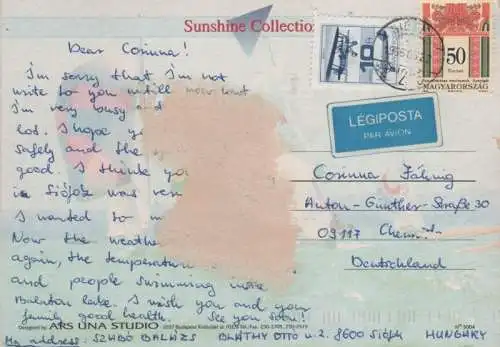 Sunshine Collection
Dear Corinna!
I'm sorry that I'm not
write to you untill now but
I'm very busy and
lot. I hope yo
safely and the
good. I think yo
in Siófok was ver
I wanted to m
Now the weathe
again, the temperatur
and people swimming in
Balaton lake. I wish you and your
family good health. See you soon!
My address: SZABÓ BALÁZS BLÁTHY OTTÓ u. 2. 8600 Siófok HUNGARY
Designed by ARS UNA STUDIO
Nº 5004
10
50
MAGYARORSZÁG
LÉGIPOSTA
PAR AVION
Corinna
Anton-Günther-Straße 30
09117 Chemnitz
Deutschland